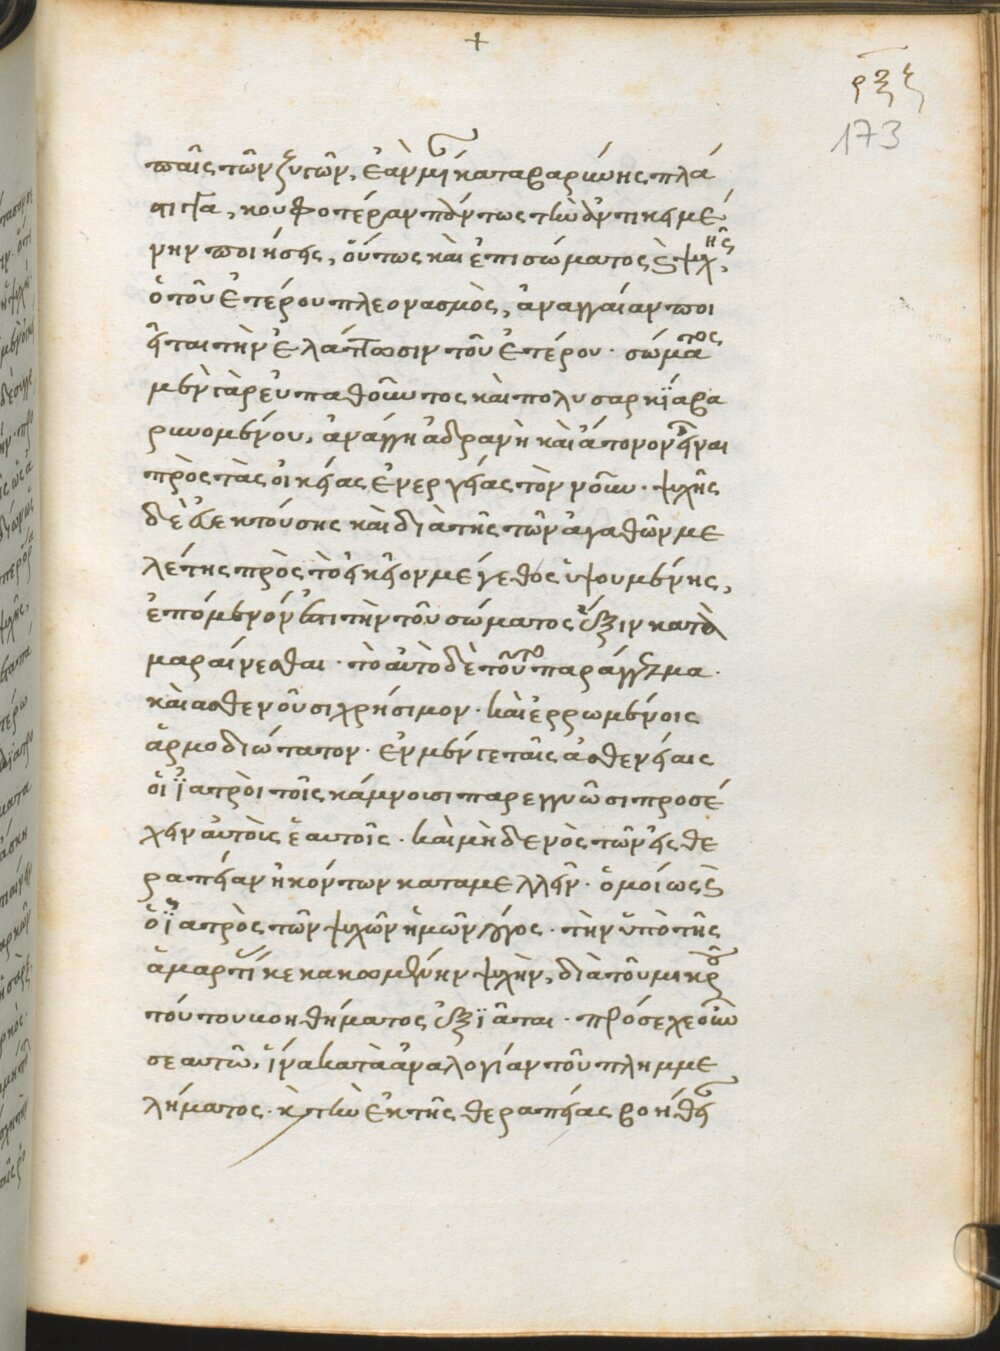 +
ρξζ
173
ταῖς τῶν ζυγῶν, ἐὰν μίαν καταβαρύνης πλά
στιγγα, κουφοτέραν πάντως τὴν ἀντικειμέ
νην ποιήσεις, οὕτως καὶ ἐπὶ σώματος καὶ ψυχῆς,
ὁ τοῦ ἑτέρου πλεονασμὸς, ἀναγκαίαν ποι
εῖται τὴν ἐλάττωσιν τοῦ ἑτέρου· σώματος
μὲν γὰρ εὐπαθοῦντος καὶ πολυσαρκίᾳ βα
ρυνομένου, ἀνάγκη ἀδρανῆ καὶ ἄτονον εἶναι
πρὸς τὰς οἰκείας ἐνεργείας τὸν νοῦν· ψυχῆς
δὲ εὐεκτούσης καὶ διὰ τῆς τῶν ἀγαθῶν με
λέτης πρὸς τὸ οἰκεῖον μέγεθος ὑψουμένης,
ἑπόμενόν ἐστι τὴν τοῦ σώματος ἕξιν κατα
μαραίνεσθαι· τὸ αὐτὸ δὲ τοῦτο παράγγελμα·
καὶ ἀσθενοῦσι χρήσιμον· καὶ ἐρρωμένοις
ἁρμοδιώτατον· ἐν μέν γε ταῖς ἀσθενείαις
οἱ ἰατροὶ τοῖς κάμνουσι παρεγγυῶσι προσέ
χειν αὐτοὺς ἑαυτοῖς· καὶ μηδενὸς τῶν εἰς θε
ραπείαν ἡκόντων καταμελλεῖν· ὁμοίως καὶ
ὁ ἰατρὸς τῶν ψυχῶν ἡμῶν λόγος· τὴν ὑπὸ τῆς
ἁμαρτίας κεκακωμένην ψυχὴν, διὰ τοῦ μικροῦ
τούτου βοηθήματος ἐξιᾶται· πρόσεχε οὖν
σεαυτῶ, ἵνα κατὰ ἀναλογίαν τοῦ πλημμε
λήματος· καὶ τὴν ἐκ τῆς θεραπείας βοήθειαν